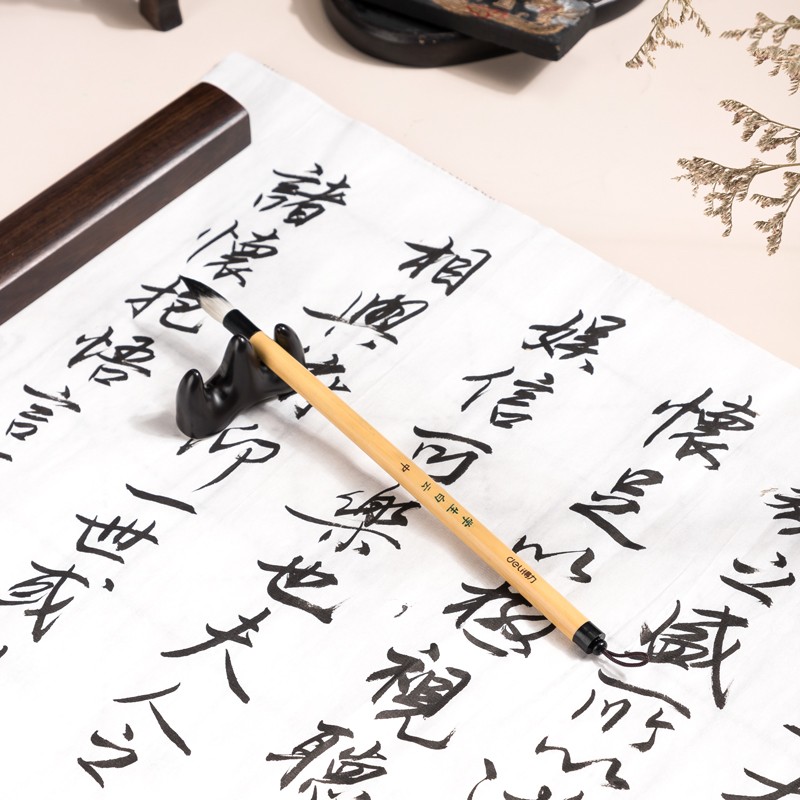 之盛所以
懷足以極視聽
娛信可樂也夫人之
相與俯仰一世或
諸懷抱悟言
羊毫 白云 中
deli得力